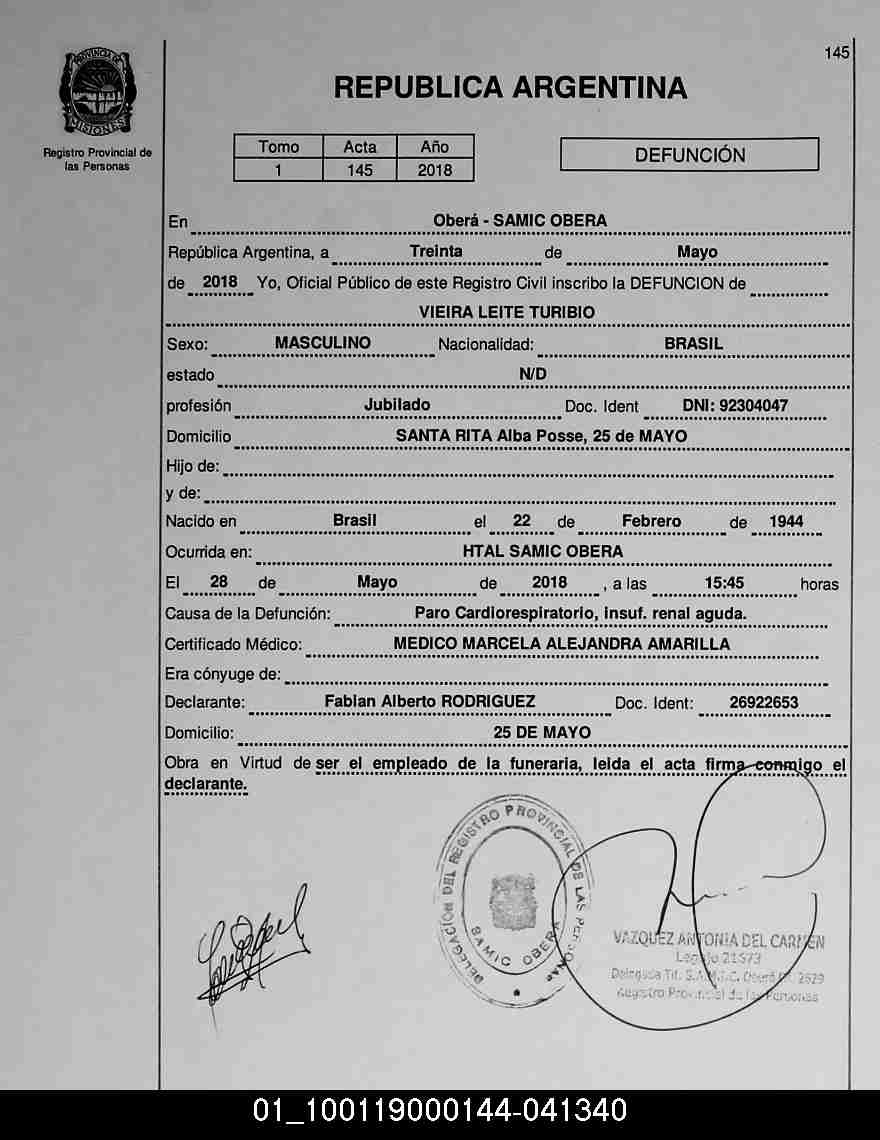 145
PROVINCIA DE
MISIONES
Registro Provincial de
las Personas
REPUBLICA ARGENTINA
Tomo Acta Año
1 145 2018
DEFUNCIÓN
En Oberá - SAMIC OBERA
República Argentina, a Treinta de Mayo
de 2018 Yo, Oficial Público de este Registro Civil inscribo la DEFUNCION de
VIEIRA LEITE TURIBIO
Sexo: MASCULINO Nacionalidad: BRASIL
estado N/D
profesión Jubilado Doc. Ident DNI: 92304047
Domicilio SANTA RITA Alba Posse, 25 de MAYO
Hijo de:
y de:
Nacido en Brasil el 22 de Febrero de 1944
Ocurrida en: HTAL SAMIC OBERA
El 28 de Mayo de 2018 , a las 15:45 horas
Causa de la Defunción: Paro Cardiorespiratorio, insuf. renal aguda.
Certificado Médico: MEDICO MARCELA ALEJANDRA AMARILLA
Era cónyuge de:
Declarante: Fabian Alberto RODRIGUEZ Doc. Ident: 26922653
Domicilio: 25 DE MAYO
Obra en Virtud de ser el empleado de la funeraria, leida el acta firma conmigo el
declarante.
DELEGACION DEL REGISTRO PROVINCIAL DE LAS PERSONAS
SAMIC OBERA
VAZQUEZ ANTONIA DEL CARMEN
Legajo 21573
Delegada Tit. S.A.M.I.C. Oberá 2629
Registro Provincial de las Personas
01_100119000144-041340